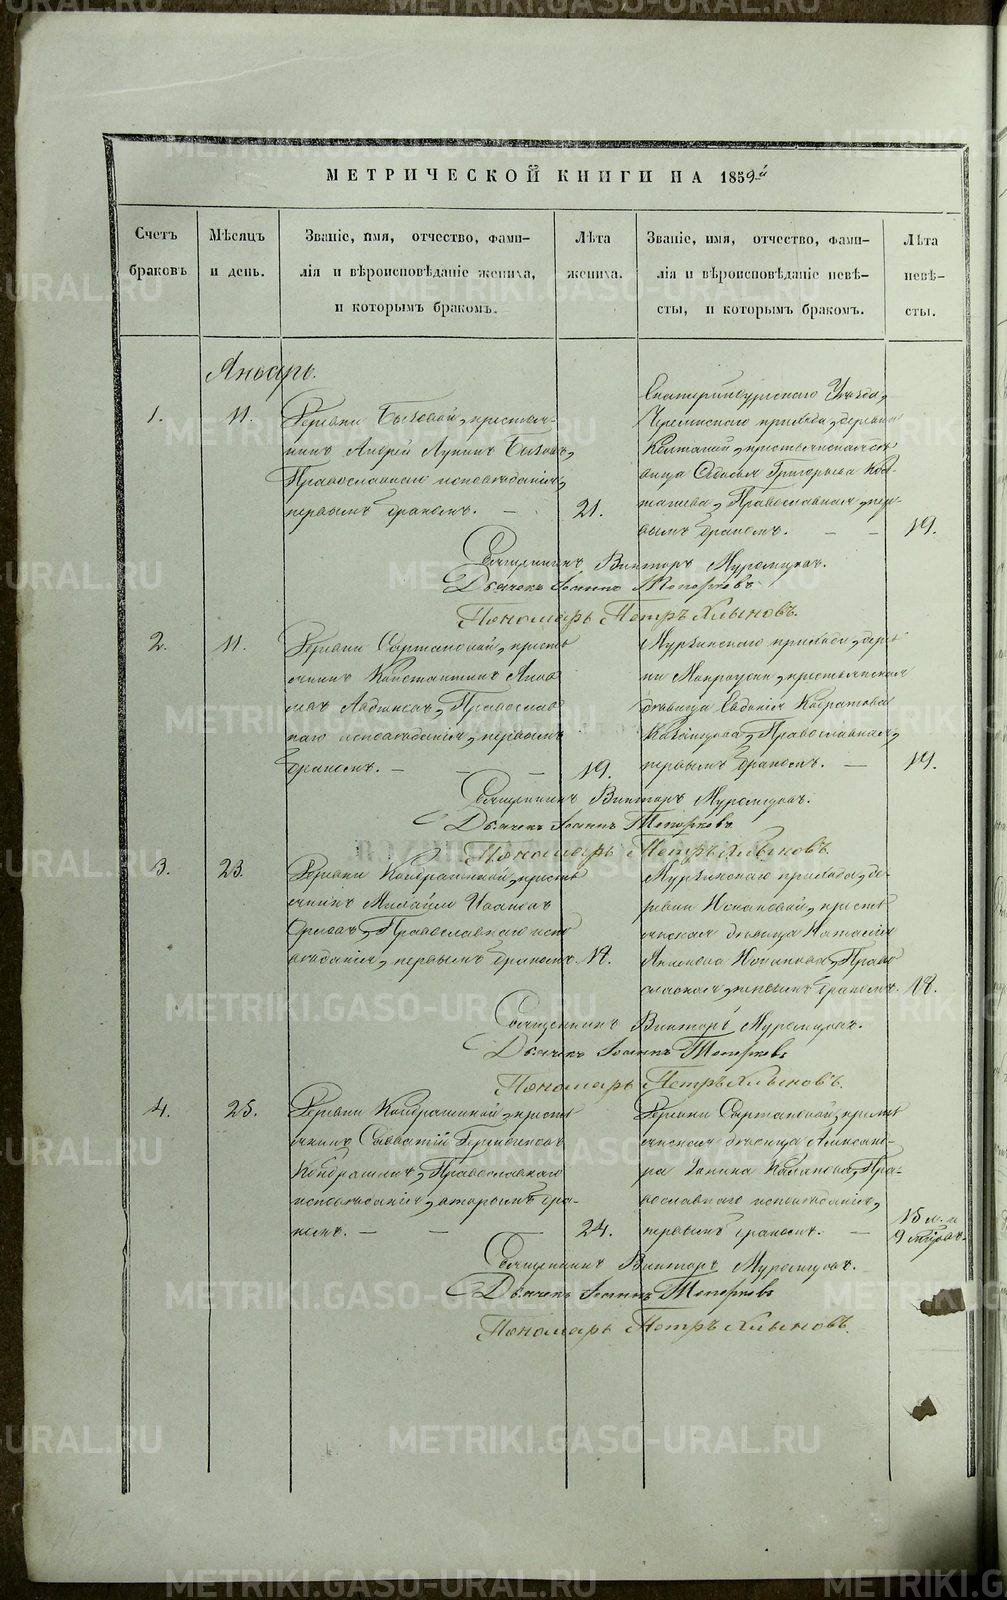 МЕТРИЧЕСКОЙ КНИГИ НА 1859й
Счетъ браковъ
Мѣсяцъ и день.
Званіе, имя, отчество, фами-
лія и вѣроисповѣданіе жениха,
и которымъ бракомъ.
Лѣта жениха.
Званіе, имя, отчество, фами-
лія и вѣроисповѣданіе невѣ-
сты, и которымъ бракомъ.
Лѣта невѣ-
сты.
Январь.
1.
11.
Деревни Быковой, крестья-
нинъ Андрей Лукинъ Быковъ,
Православнаго исповѣданія,
первымъ бракомъ. —
21.
Екатеринбургскаго Уѣзда,
прихода, деревни
крестьянская дѣ-
вица Григорьева
Православная, пер-
вымъ бракомъ. — —
19.
Священникъ Викторъ Муромцовъ.
Дьячекъ Іоаннъ Топорковъ
Пономарь Петръ Хлыновъ.
2.
11.
Деревни крестья-
нинъ Константинъ
Православ-
наго исповѣданія, первымъ
бракомъ. — — —
19.
Мурзинскаго прихода, дерев-
ни крестьянская
дѣвица Евдокія
Православная,
первымъ бракомъ. —
19.
Священникъ Викторъ Муромцовъ.
Дьячекъ Іоаннъ Топорковъ
Пономарь Петръ Хлыновъ
3.
23.
Деревни Кондрашиной, кресть-
янинъ Михайло Ивановъ
Православнаго испо-
вѣданія, первымъ бракомъ.
18.
Мурзинскаго прихода, де-
ревни кресть-
янская дѣвица Наталія
Право-
славная, первымъ бракомъ.
18.
Священникъ Викторъ Муромцовъ.
Дьячекъ Іоаннъ Топорковъ
Пономарь Петръ Хлыновъ.
4.
25.
Деревни Кондрашиной, кресть-
янинъ Савватій
Кондрашинъ, Православнаго
исповѣданія, вторымъ бра-
комъ. — — —
24.
Деревни кресть-
янская дѣвица Александ-
ра Пра-
вославнаго исповѣданія,
первымъ бракомъ. —
15 л. и
9
Священникъ Викторъ Муромцовъ.
Дьячекъ Іоаннъ Топорковъ
Пономарь Петръ Хлыновъ.
METRIKI.GASO-URAL.RU